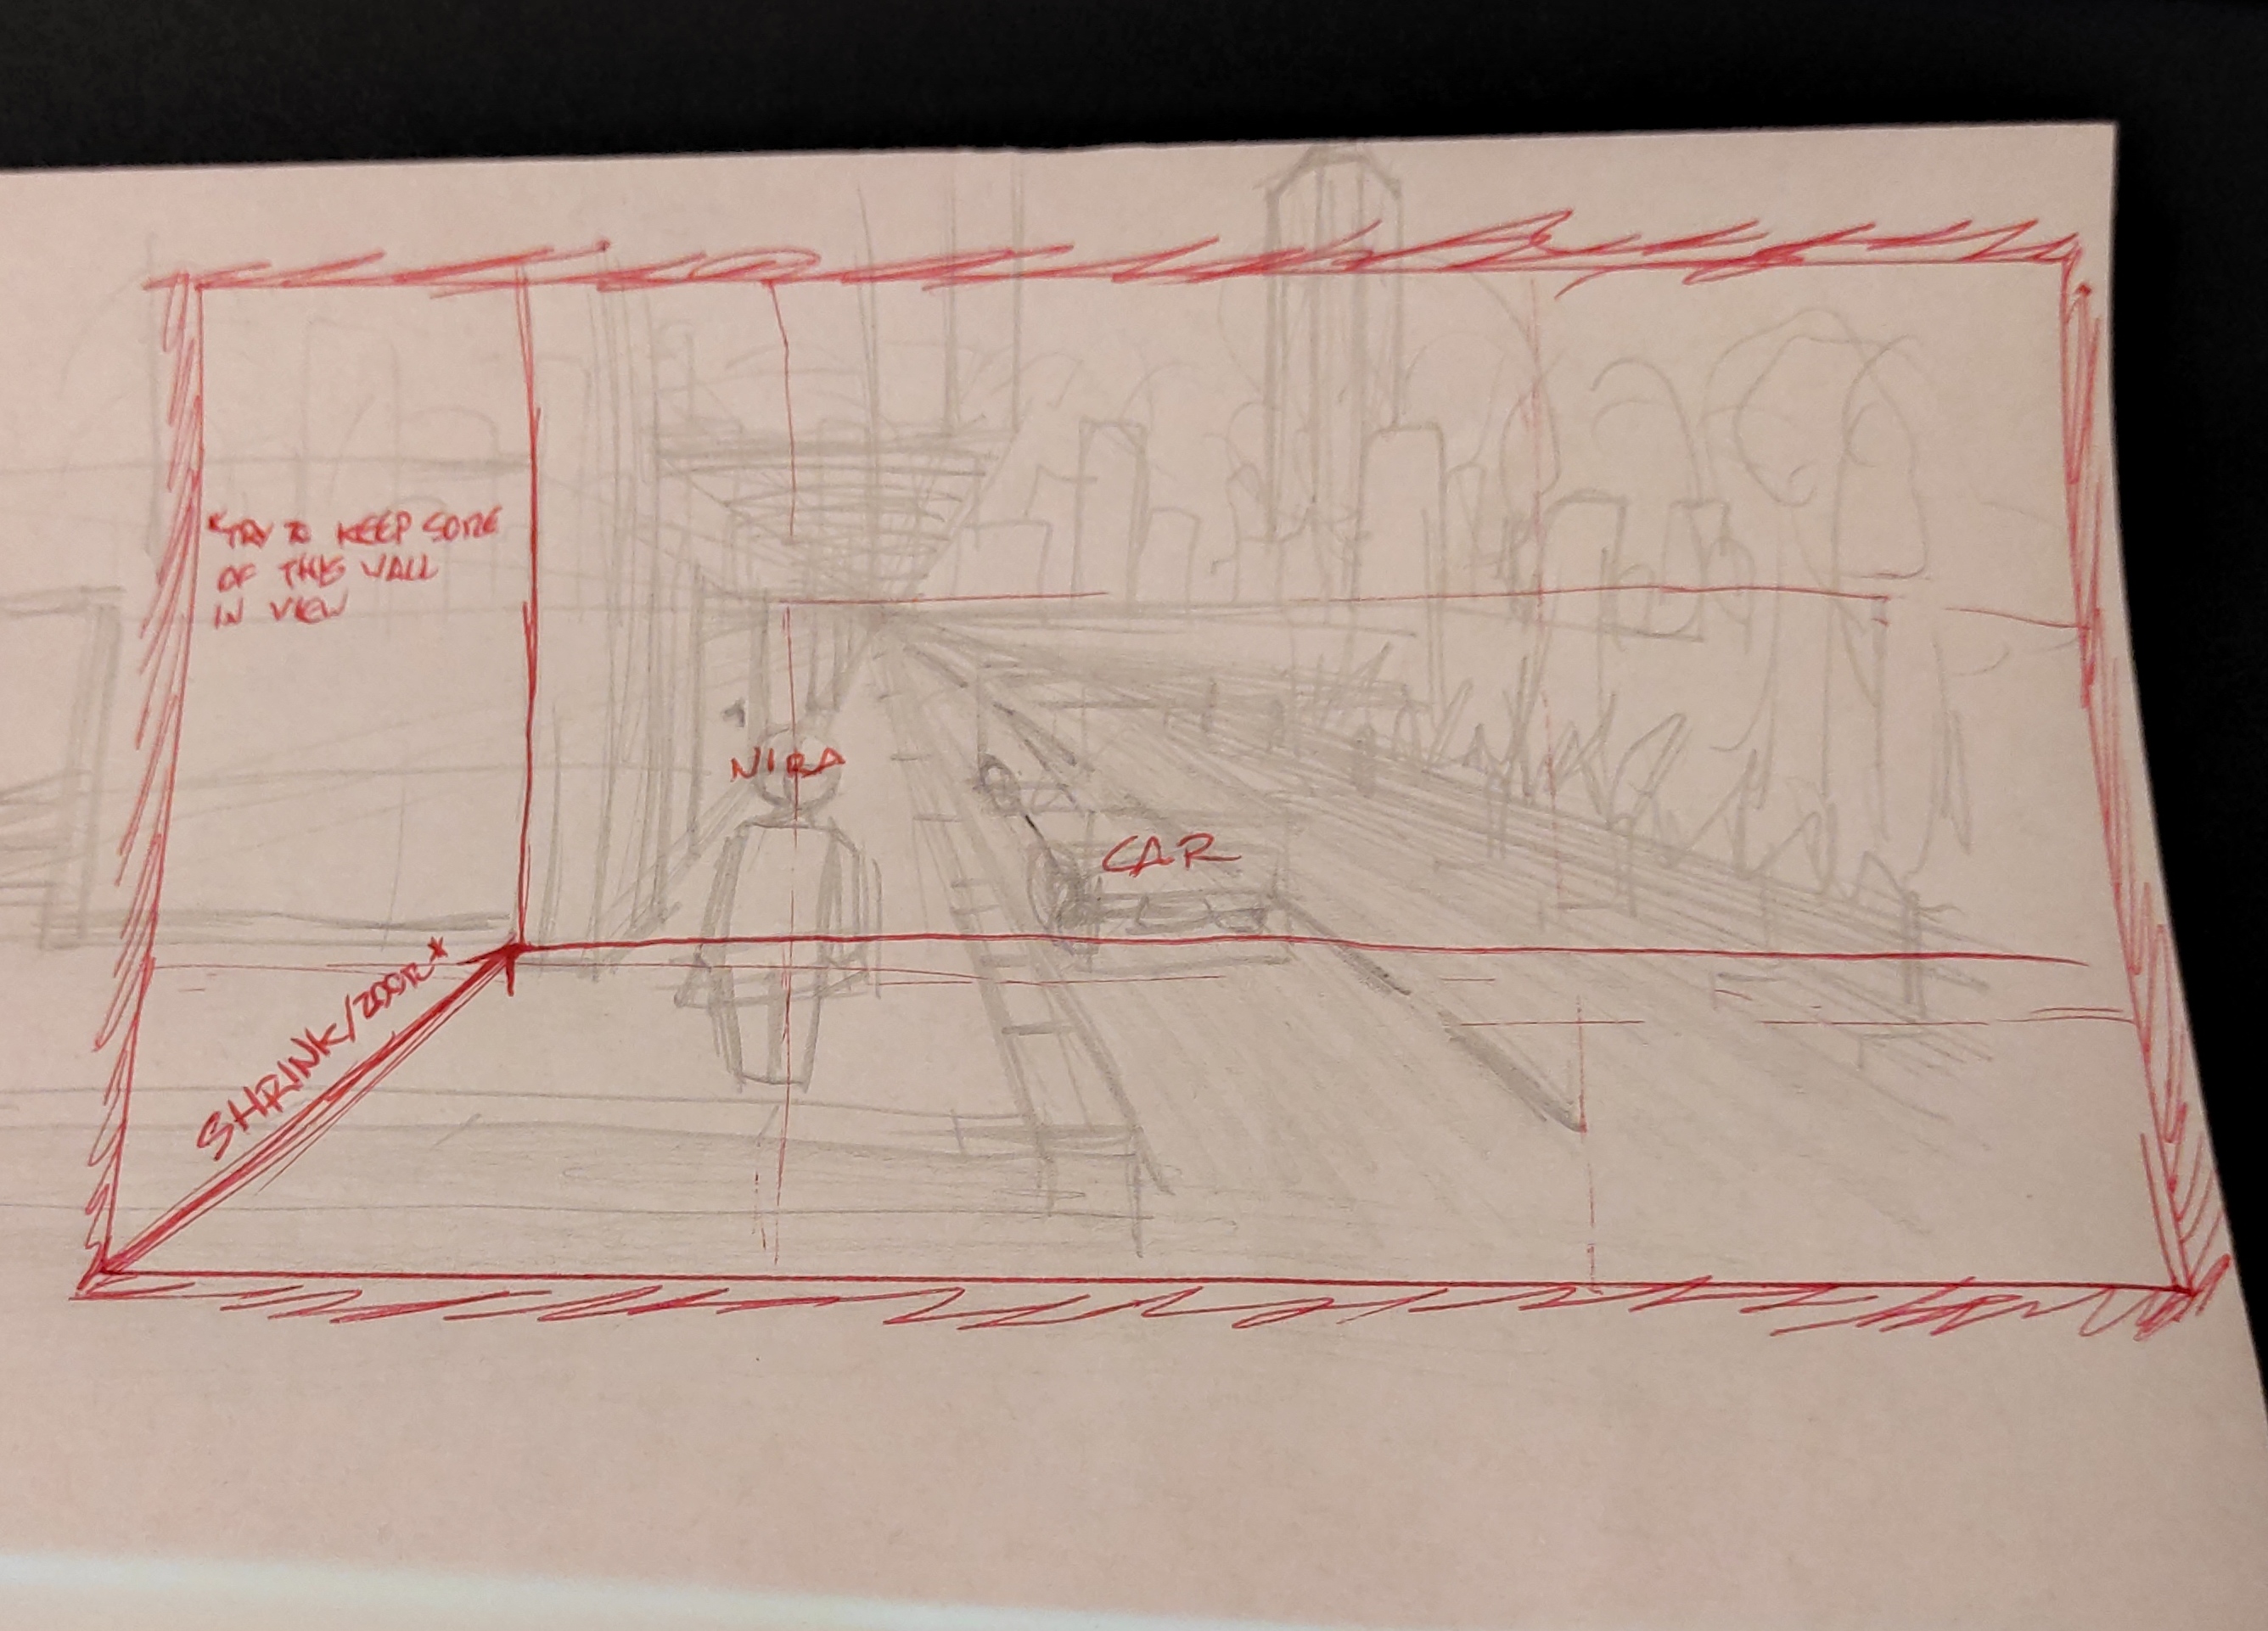 *TRY TO KEEP SOME
OF THIS WALL
IN VIEW
NIRA
CAR
SHRINK/ZOOM*